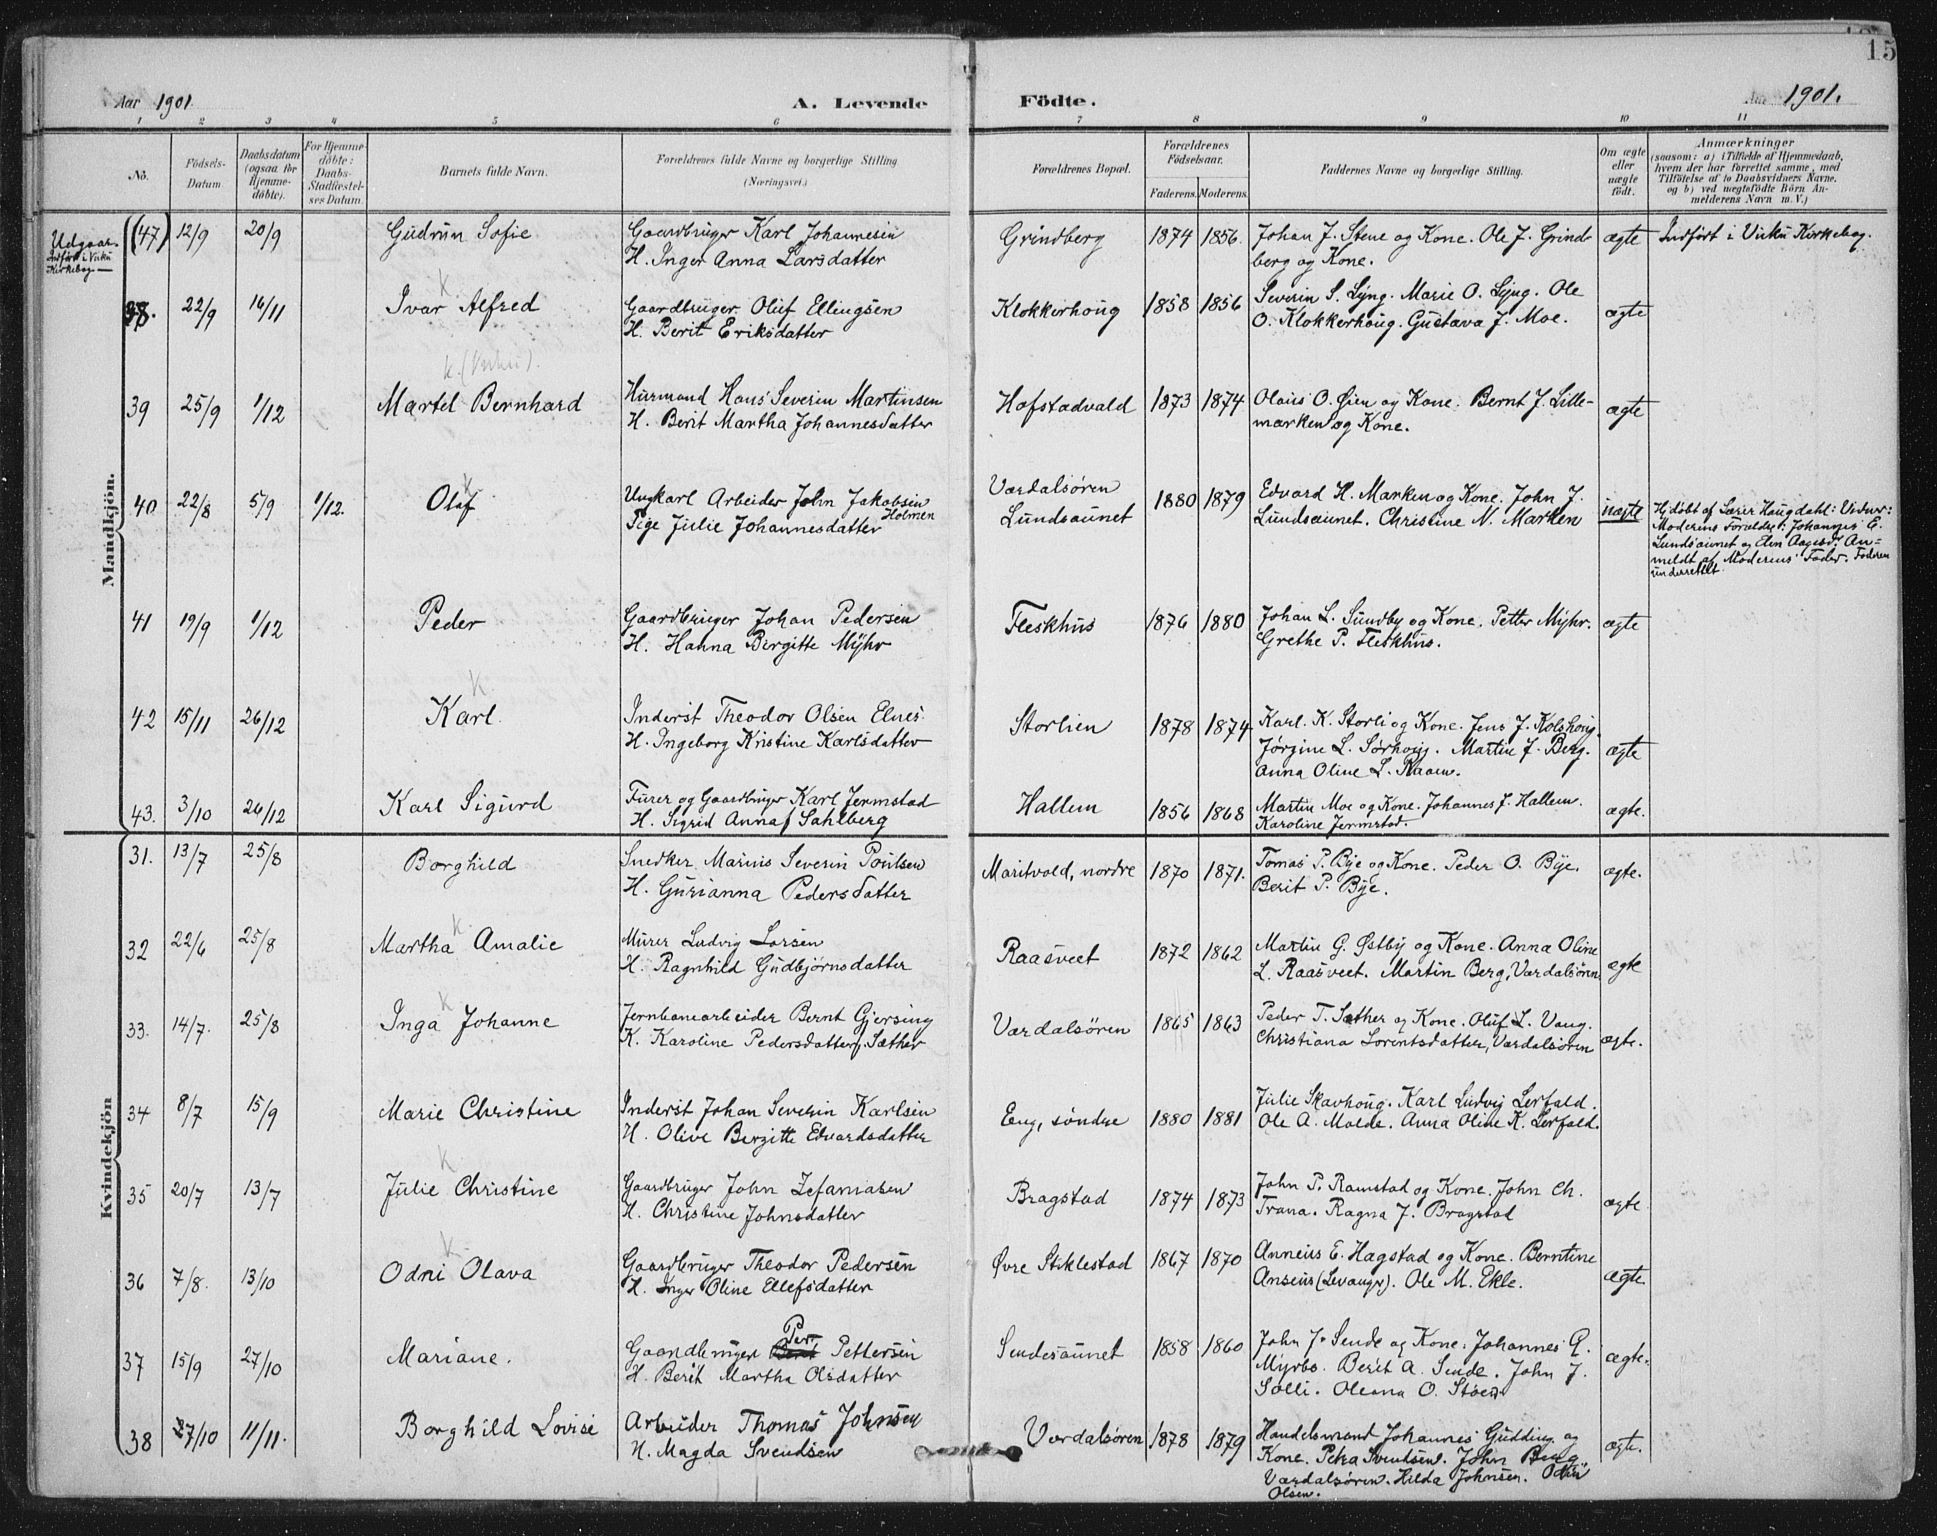 15
Aar 1901. A. Levende Födte. Aar 1901.
1 2 3 4 5 6 7 8 9 10 11
No.
Födsels-
Datum
Daabsdatum
(ogsaa for
Hjemme-
döbte).
For Hjemme-
döbte:
Daabs-
Stadfæstel-
ses Datum.
Barnets fulde Navn.
Forældrenes fulde Navne og borgerlige Stilling
(Næringsvei.)
Forældrenes Bopæl.
Forældrenes
Födselsaar.
Faderens. Moderens.
Faddernes Navne og borgerlige Stilling.
Om ægte
eller
uægte
födt.
Anmærkninger
(saasom: a) i Tilfælde af Hjemmedaab,
hvem der har forrettet samme, med
Tilföielse af to Daabsvidners Navne,
og b) ved uægtefödte Börn An-
melderens Navn m. V.)
Mandkjön.
Udgaar
Indført i Vuku
Kirkebog —
(47) 12/9 20/9 Gudrun Sofie
Gaardbruger Karl Johannesen
H. Inger Anna Larsdatter
Grindberg 1874 1856.
Johan J. Stene og Kone. Ole J. Grind-
berg og Kone.
ægte Indført i Vuku Kirkebog.
K
38. 22/9 16/11 Ivar Alfred
Gaardbruger Oluf Ellingsen
H. Berit Eriksdatter
Klokkerhoug 1858 1856
Severin S. Lyng. Marie O. Lyng. Ole
O. Klokkerhoug. Gustava J. Moe.
ægte
K. (Vuku).
39 25/9 1/12 Martel Bernhard
Husmand Hans Severin Martinsen
H. Berit Martha Johannesdatter
Hofstadvald 1873 1874
Olaus O. Øien og Kone. Bernt J. Lille-
marken og Kone.
ægte
K
40 22/8 5/9 1/12. Olaf
Ungkarl Arbeider John Jakobsen
Holmen
Pige Julie Johannesdatter
Værdalsøren
Lundsaunet 1880 1879
Edvard H. Marken og Kone. John J.
Lundsaunet. Christine N. Marken
uægte
Hjdøbt af Haugdahl: Vidner:
Moderens Forældre: Johannes E.
Lundsaunet og Elen Aagesd. An-
meldt af Moderens Fader. Faderen
underrettet.
41 19/9 1/12 Peder
Gaardbruger Johan Pedersen
H. Hanna Birgitte Myhr
Fleskhus 1876 1880
Johan L. Sundby og Kone. Petter Myhr.
Grethe P. Fleskhus.
ægte
K
42 15/11 26/12 Karl.
Inderst Theodor Olsen Elnes.
H. Ingeborg Kristine Karlsdatter
Storlien 1878 1874
Karl. K. Storli og Kone. Jens J. Kolshoug.
Jørgine L. Sørhoug. Martin J. Berg.
Anna Oline L. Raaen.
ægte
43. 3/10 26/12 Karl Sigurd
Furer og Gaardbruger Karl Jermstad
H. Sigrid Anna f Sahlberg
Hallem 1856 1868
Martin Moe og Kone. Johannes J. Hallem.
Karoline Jermstad.
ægte.
Kvindekjön
31. 13/7 25/8 Borghild
Snedker Marius Severin Poulsen
H. Gurianna Pedersdatter
Maritvold, nordre 1870 1871.
Tomas P. Bye og Kone. Peder O. Bye.
Berit P. Bye.
ægte.
K
32 22/6 25/8 Martha Amalie
Murer Ludvig Larsen
H. Ragnhild Gudbjørnsdatter
Raasveet 1872 1862
Martin G. Østby og Kone. Anna Oline
L. Raasveet. Martin Berg, Værdalsøren
ægte
K
33. 14/7. 25/8 Inga Johanne
Jernbanearbeider Bernt Gjersing
K. Karoline Pedersdatter, Sæther
Værdalsören 1865 1863
Peder T. Sæther og Kone. Oluf L. Vaug.
Christiana Lorentsdatter, Værdalsøren
ægte.
34 8/7 15/9 Marie Christine
Inderst Johan Severin Karlsen
H. Olive Birgitte Edvardsdatter
Eng, søndre 1880 1881
Julie Skavhoug. Karl Ludvig Lerfald.
Ole A. Molde. Anna Oline K. Lerfald.
K
35 20/7 13/7 Julie Christine
Gaardbruger John Zefaniasen
H. Christine Johnsdatter
Bragstad 1874 1873
John P. Ramstad og Kone. John Ch.
Trana. Ragna J. Bragstad
ægte.
K
36 7/8. 13/10 Odni Olava
Gaardbruger Theodor Pedersen
H. Inger Oline Ellefsdatter
Øvre Stiklestad 1867 1870
Anneus E. Hagstad og Kone. Berntine
Anseus (Levanger). Ole M. Ekle.
ægte.
37 15/9 27/10 Mariane.
Per
Gaardbruger Bernt Pettersen
H. Berit Martha Olsdatter
Sendesaunet 1858 1860
John J. Sende og Kone. Johannes A.
Myrbo. Berit A. Sende. John J.
Solli. Oleana O. Støen
ægte.
38 27/10 11/11. Borghild Lovise
Arbeider Thomas Johnsen
H. Magda Svendsen
Værdalsören 1878 1879
Handelsmand Johannes Gudding og
Kone. Petra Svendsen. John Berg,
Værdalsören. Hilda Johnsen. Odin
Olsen.
ægte.